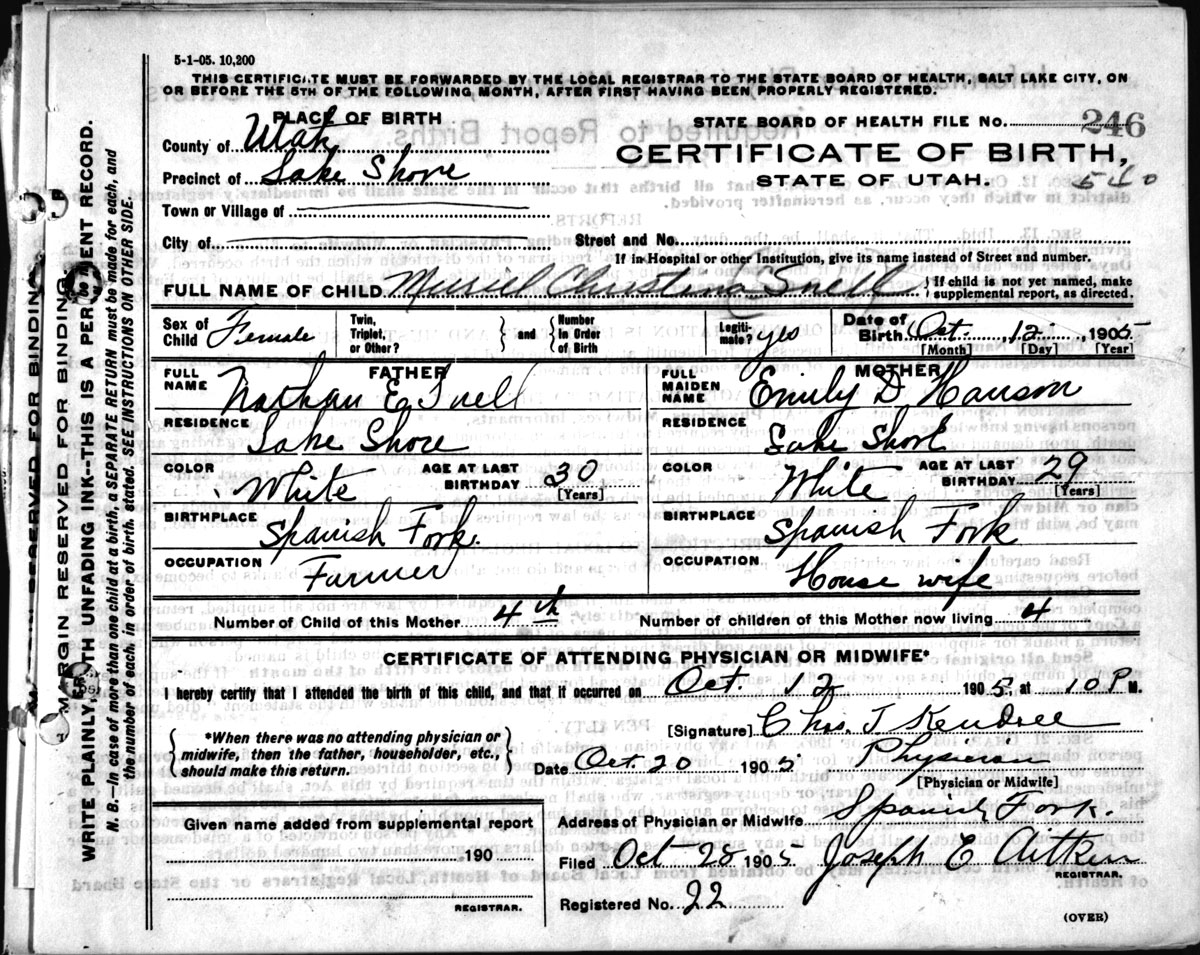 5-1-05. 10,200
THIS CERTIFICATE MUST BE FORWARDED BY THE LOCAL REGISTRAR TO THE STATE BOARD OF HEALTH, SALT LAKE CITY, ON
OR BEFORE THE 5TH OF THE FOLLOWING MONTH, AFTER FIRST HAVING BEEN PROPERLY REGISTERED.
PLACE OF BIRTH
STATE BOARD OF HEALTH FILE NO. 246
County of Utah
CERTIFICATE OF BIRTH,
Precinct of Lake Shore
STATE OF UTAH.
Town or Village of
City of
Street and No.
If in Hospital or other Institution, give its name instead of Street and number.
FULL NAME OF CHILD Muriel Christina Snell } If child is not yet named, make supplemental report, as directed.
Sex of Child Female
Twin, Triplet, or Other? } and { Number in Order of Birth
Legitimate? yes
Date of Birth Oct. 12, 1905
[Month] [Day] [Year]
FATHER
FULL NAME Nathan E Snell
MOTHER
FULL MAIDEN NAME Emily D Hanson
RESIDENCE Lake Shore
RESIDENCE Lake Shore
COLOR White AGE AT LAST BIRTHDAY 30 [Years]
COLOR White AGE AT LAST BIRTHDAY 29 [Years]
BIRTHPLACE Spanish Fork.
BIRTHPLACE Spanish Fork
OCCUPATION Farmer
OCCUPATION House wife
Number of Child of this Mother 4th
Number of children of this Mother now living 4
CERTIFICATE OF ATTENDING PHYSICIAN OR MIDWIFE*
I hereby certify that I attended the birth of this child, and that it occurred on Oct. 12 1905 at 10 P M.
[Signature] Chas. J.
{ *When there was no attending physician or
midwife, then the father, householder, etc.,
should make this return. }
Date Oct. 20 1905 Physician
[Physician or Midwife]
Given name added from supplemental report
190
REGISTRAR.
Address of Physician or Midwife Spanish Fork.
Filed Oct 20 1905 Joseph E Aitken
REGISTRAR.
Registered No. 22
(OVER)
MARGIN RESERVED FOR BINDING.
WRITE PLAINLY, WITH UNFADING INK--THIS IS A PERMANENT RECORD.
N. B.—In case of more than one child at a birth, a SEPARATE RETURN must be made for each, and
the number of each, in order of birth, stated. SEE INSTRUCTIONS ON OTHER SIDE.